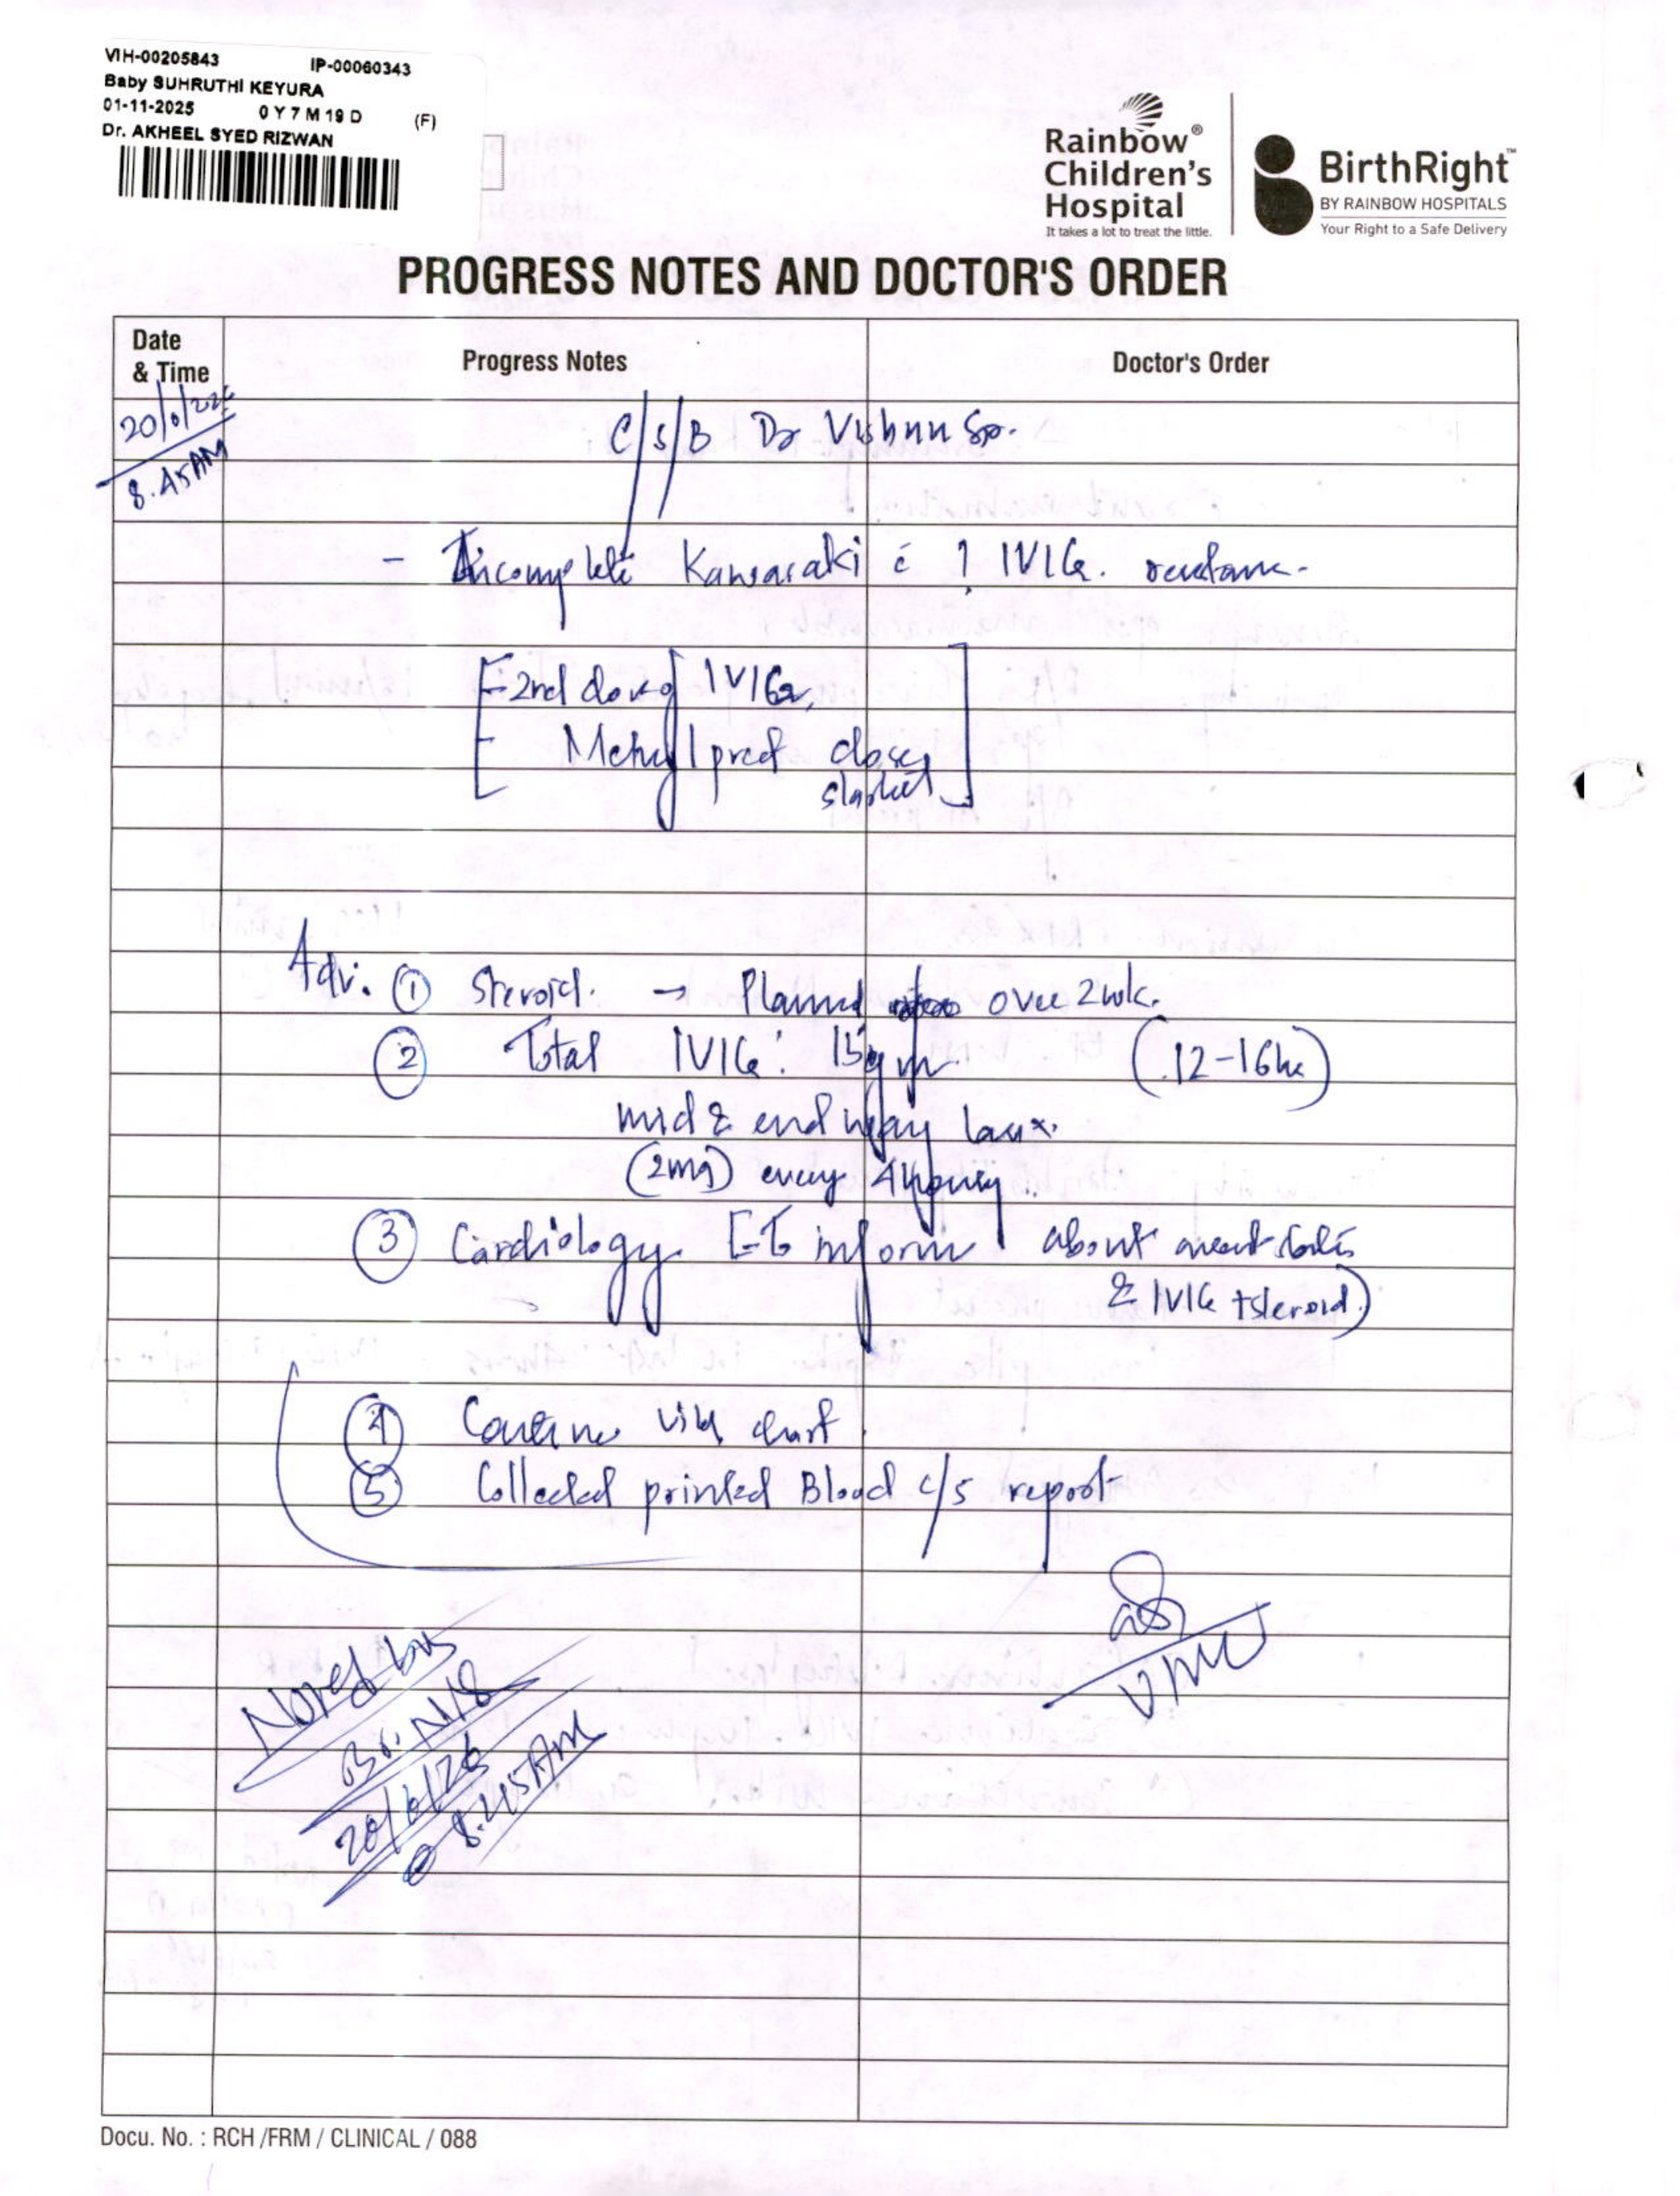 VIH-00205843 IP-00060343
Baby SUHRUTHI KEYURA
01-11-2025 0 Y 7 M 19 D (F)
Dr. AKHEEL SYED RIZWAN
Rainbow®
Children's
Hospital
It takes a lot to treat the little.
BirthRight™
BY RAINBOW HOSPITALS
Your Right to a Safe Delivery
PROGRESS NOTES AND DOCTOR'S ORDER
Date
& Time
Progress Notes
Doctor's Order
8.45AM
C/S/B Dr Vishnu Sir.
- Incomplete Kawasaki c̄ ? IVIG.
- 2nd dose of IVIG,
- Methylpred dose
started
Adv. ① Steroid. → Planned over 2 wk.
② Total IVIG: 15gm (12-16hr)
mid & end way Lasix.
(2mg) every 4 hourly.
③ Cardiology [To inform about
& IVIG + steroid)
④ Continue chart
⑤ Collected printed Blood c/s report
Noted by
20/6/26
@ 8.45AM
Docu. No. : RCH /FRM / CLINICAL / 088